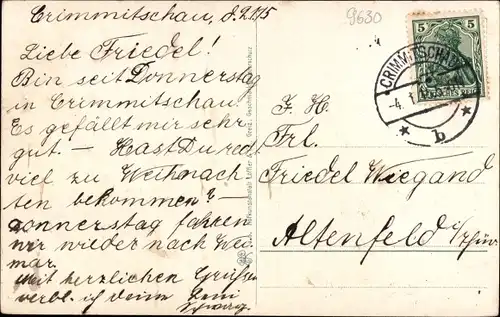 Crimmitschau, d. 2.1.15
Liebe Friedel!
Bin seit Donnerstag
in Crimmitschau
Es gefällt mir sehr
gut. — Hast Du recht
viel zu Weihnach
ten bekommen? —
Donnerstag fahren
wir wieder nach Wei
mar.
Mit herzlichen Grüßen
verbl. ich deine
9630
5 5
CRIMMITSCHAU
b
F. H.
Frl.
Friedel Wiegand
Altenfeld i/Thür.